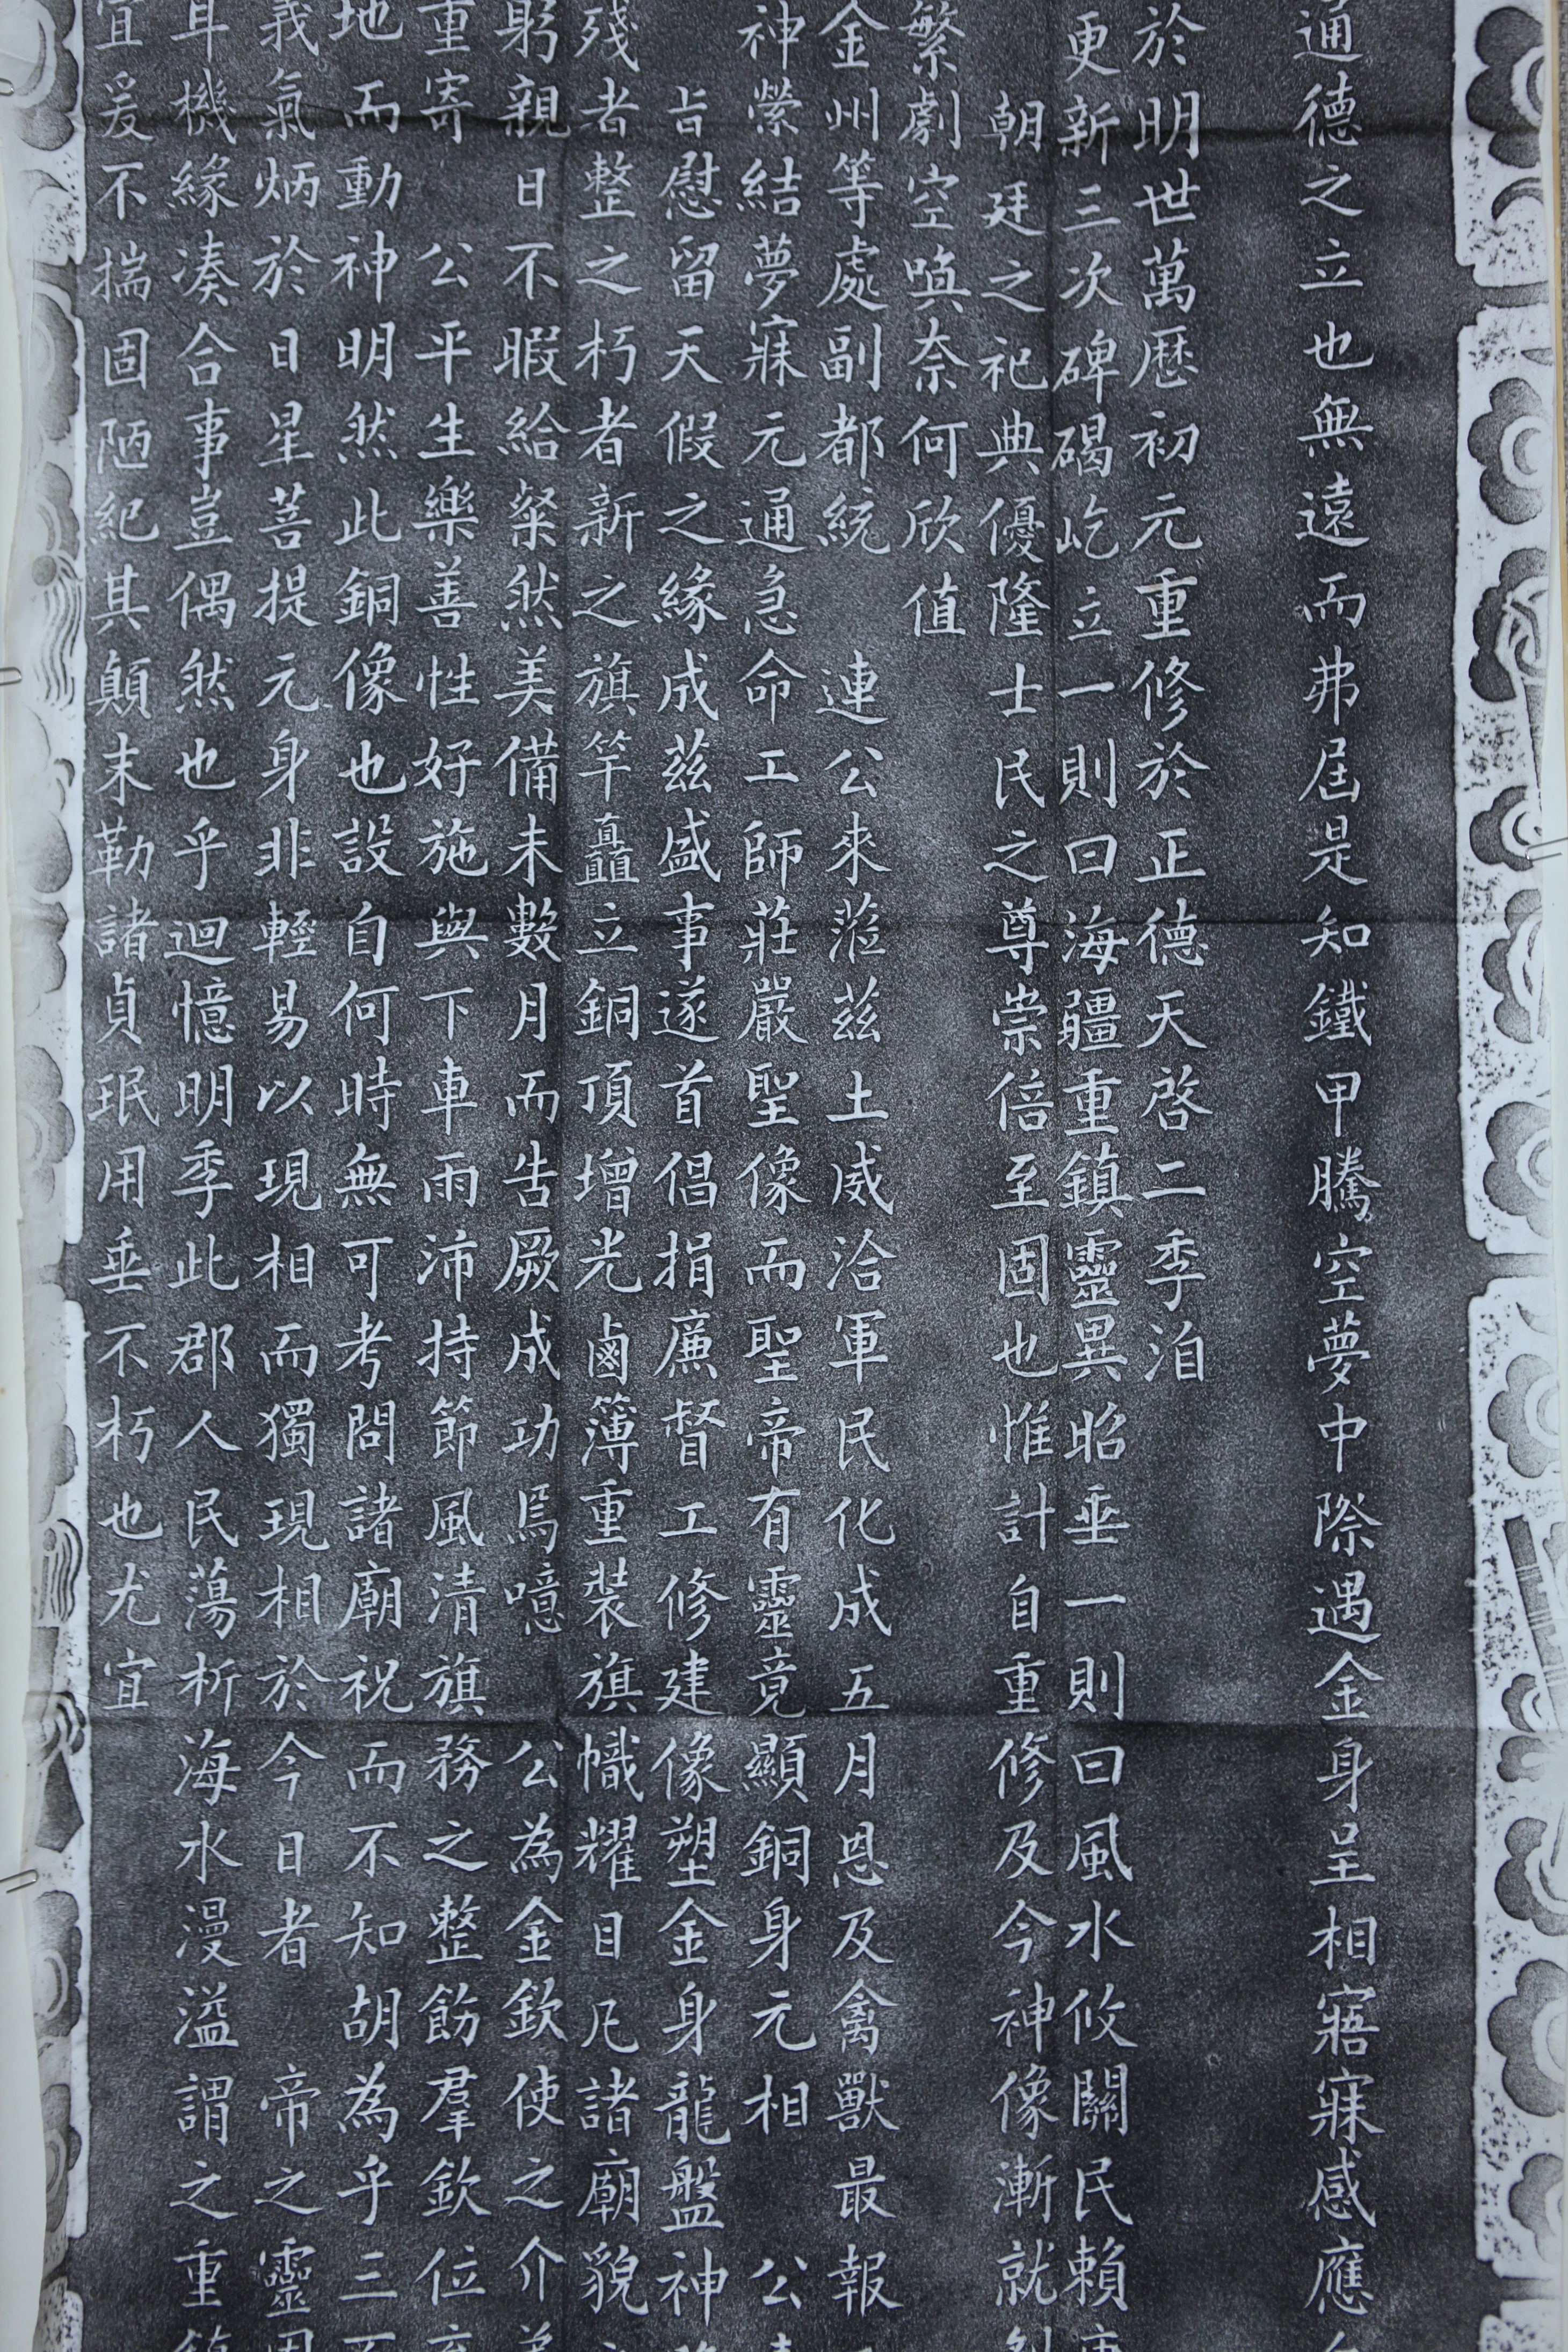 通德之立也無遠而弗屆是知鐵甲騰空夢中際遇金身呈相寤寐感應
於明世萬歷初元重修於正德天啓二季洎
更新三次碑碣屹立一則曰海疆重鎮靈異昭垂一則曰風水攸關民賴
朝廷之祀典優隆士民之尊崇倍至固也惟計自重修及今神像漸就
繁劇空喚奈何欣值
金州等處副都統 連公來蒞茲土威洽軍民化成五月恩及禽獸最報
神縈結夢寐元通急命工師莊嚴聖像而聖帝有靈竟顯銅身元相 公
旨慰留天假之緣成茲盛事遂首倡捐廉督工修建像塑金身龍盤神
殘者整之朽者新之旗竿矗立銅頂增光鹵簿重裝旗幟耀目凡諸廟貌
躬親日不暇給粲然美備未數月而告厥成功焉噫 公為金欽使之介
重寄 公平生樂善性好施與下車雨沛持節風清旗務之整飭羣欽位
地而動神明然此銅像也設自何時無可考問諸廟祝而不知胡為乎三
義氣炳於日星菩提元身非輕易以現相而獨現相於今日者 帝之靈
耳機緣湊合事豈偶然也乎迴憶明季此郡人民蕩析海水漫溢謂之重
宜爰不揣固陋紀其顛末勒諸貞珉用垂不朽也尤宜